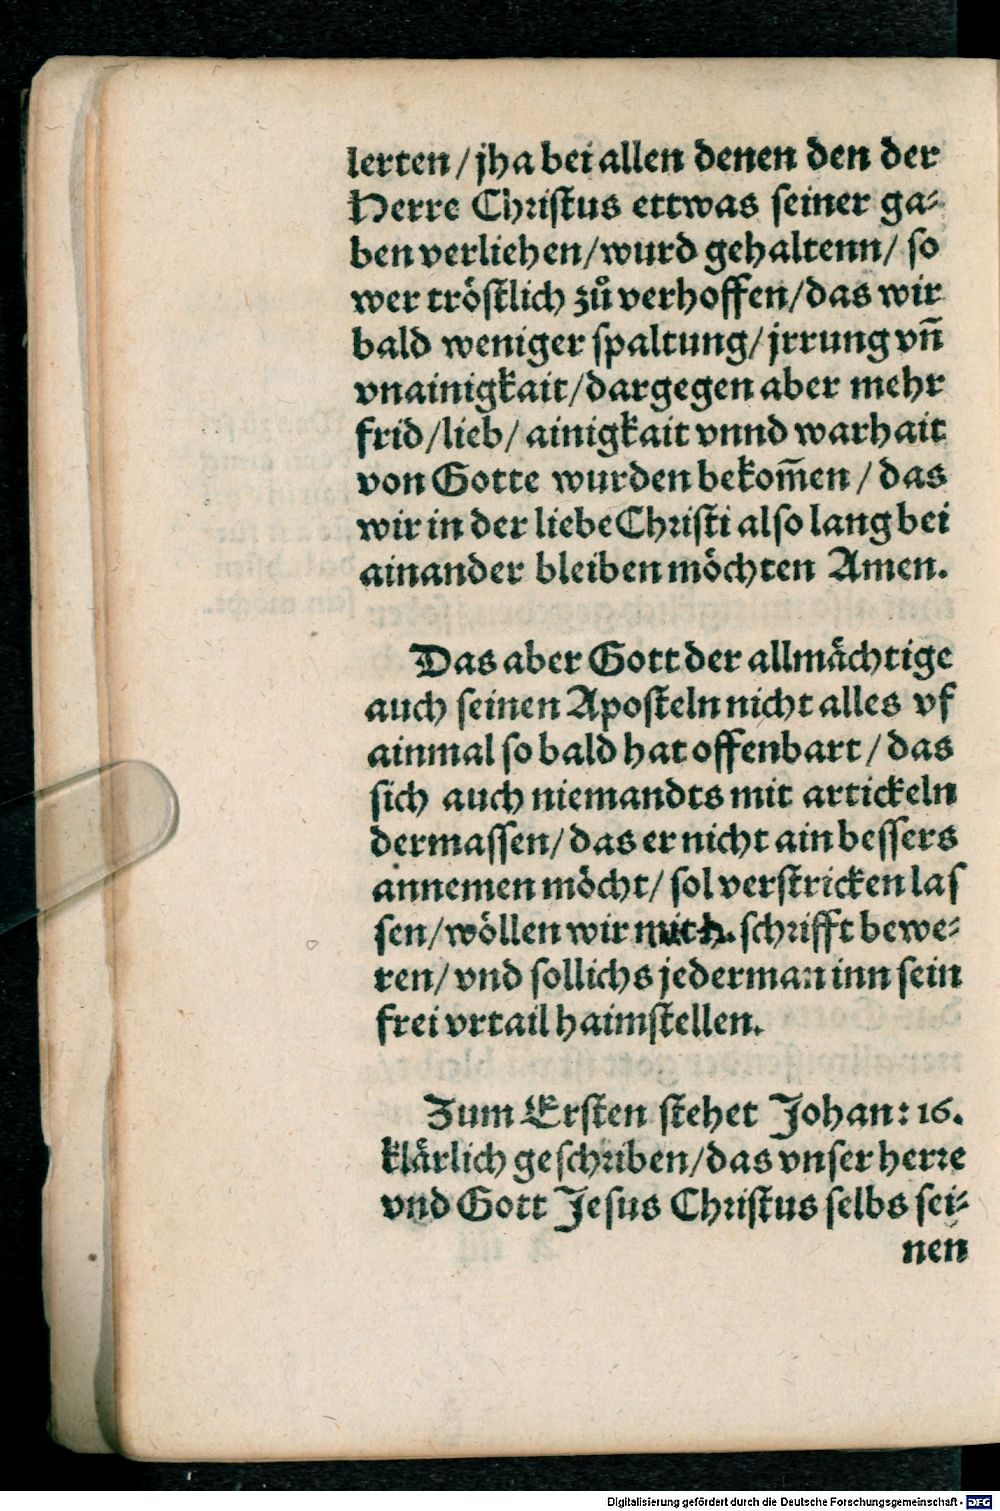 lerten / jha bei allen denen den der
Herre Christus ettwas seiner ga⸗
ben verliehen/wurd gehaltenn/ so
wer tröstlich zů verhoffen/das wir
bald weniger spaltung/ jrrung vn̄
vnainigkait/dargegen aber mehr
frid/lieb/ ainigkait vnnd warhait
von Gotte wurden bekom̄en / das
wir in der liebe Christi also lang bei
ainander bleiben möchten Amen.
Das aber Gott der allmächtige
auch seinen Aposteln nicht alles vf
ainmal so bald hat offenbart / das
sich auch niemandts mit artickeln
dermassen/ das er nicht ain bessers
annemen möcht/ sol verstricken las
sen/wöllen wir mit h. schrifft bewe⸗
ren/ vnd sollichs jederman inn sein
frei vrtail haimstellen.
Zum Ersten stehet Johan: 16.
klärlich geschriben/das vnser herre
vnd Gott Jesus Christus selbs sei⸗
nen
Digitalisierung gefördert durch die Deutsche Forschungsgemeinschaft - DFG